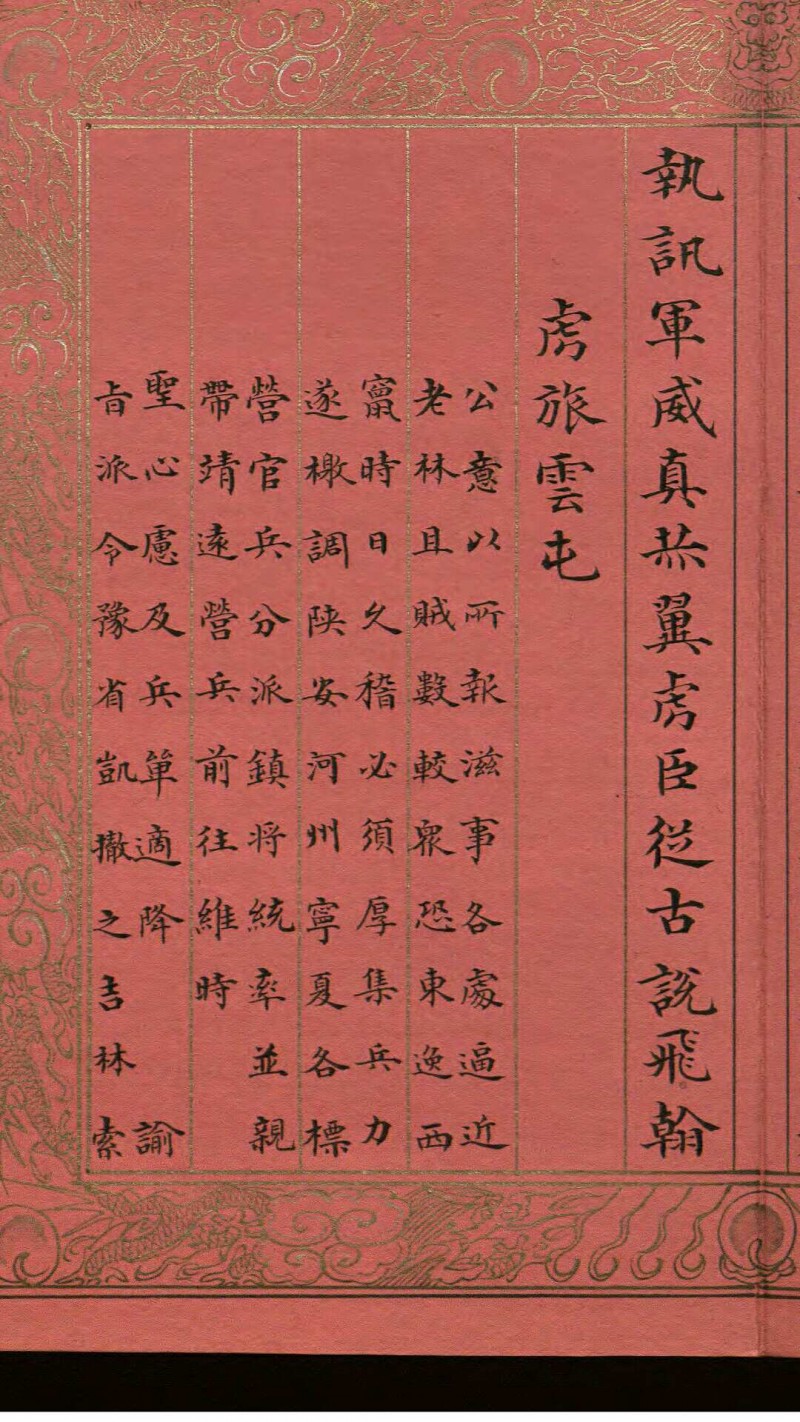 執訊軍威真恭翼虎臣從古說飛翰
虎旅雲屯
公意以所報滋事各處逼近
老林且賊數較眾恐東逸西
竄時日久稽必須厚集兵力
遂檄調陝安河州寧夏各標
營官兵分派鎮將統率並親
帶靖遠營兵前往維時
聖心慮及兵單適降諭
旨派令豫省凱撤之吉林索